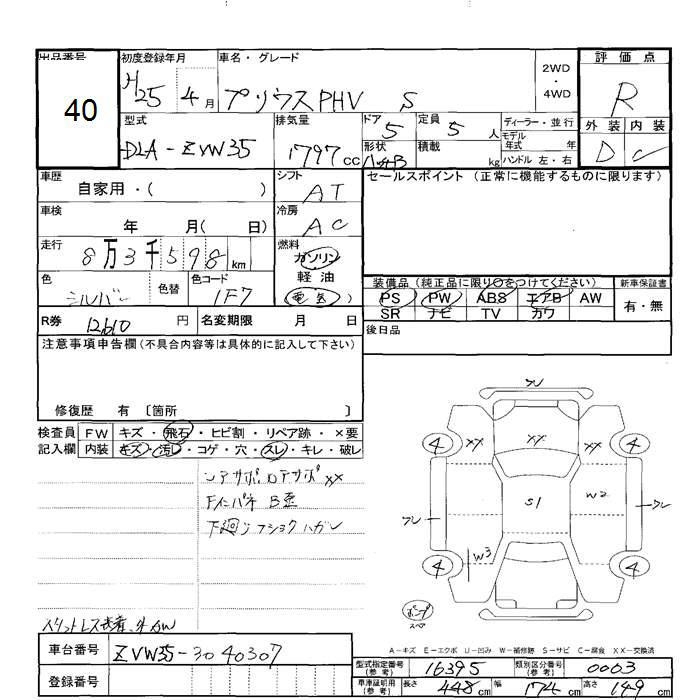 出品番号
40
初度登録年月
H25 4月
車名・グレード
プリウスPHV S
2WD
・
4WD
評価点
R
外装 内装
D C
型式
DLA-ZVW35
排気量
1797cc
ドア
5
定員
5人
形状
ハッチB
積載
kg
ディーラー・並行
モデル年式 年
ハンドル 左・右
車歴
自家用・( )
シフト
AT
車検
年 月( 日)
冷房
AC
走行
8万3千598km
燃料
ガソリン
軽油
電気
色
シルバー
色替
色コード
1F7
R券 12610円
名変期限 月 日
セールスポイント (正常に機能するものに限ります)
装備品(純正品に限り○をつけてください)
PS PW ABS エアB AW
SR ナビ TV カワ
新車保証書
有・無
後日品
注意事項申告欄(不具合内容等は具体的に記入して下さい)
修復歴 有 〔箇所 〕
検査員
記入欄
FW キズ・飛石・ヒビ割・リペア跡・×要
内装 キズ・汚レ・コゲ・穴・スレ・キレ・破レ
コアサポロアサポXX
FインパネB歪
下廻りフショクハガレ
フレ
4 XX XX XX 4
フレ S1 W2 フレ
4 W3 4
スペア
A-キズ E-エクボ U-凹み W-補修跡 S-サビ C-腐食 XX-交換済
車台番号
ZVW35-3040307
登録番号
型式指定番号
(参考)
16395
類別区分番号
(参考)
0003
車庫証明用
(参考)
長さ 448cm 幅 174cm 高さ 149cm